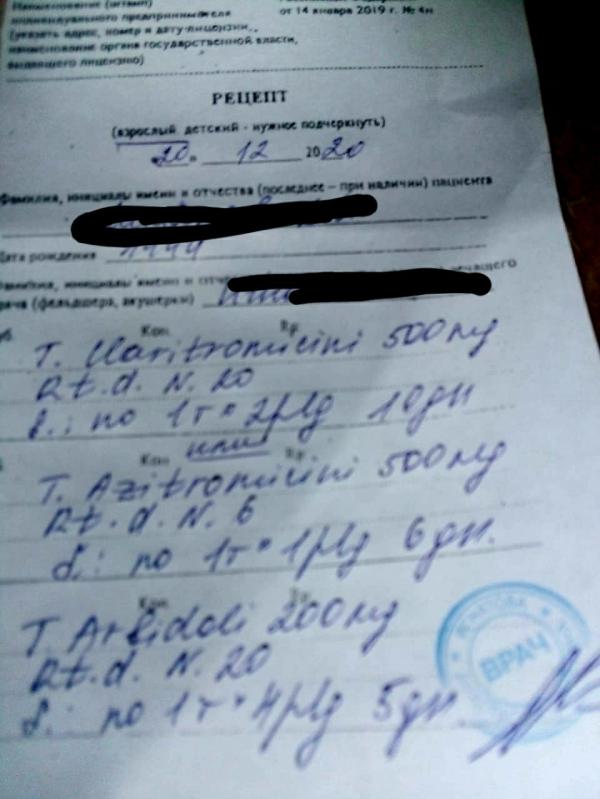 Наименование (штамп)
индивидуального предпринимателя
от 14 января 2019 г. № 4н
(указать адрес, номер и дату лицензии,
наименование органа государственной власти,
выдавшего лицензию)
РЕЦЕПТ
(взрослый, детский - нужное подчеркнуть)
20 12 2020
Фамилия, инициалы имени и отчества (последнее – при наличии) пациента
Дата рождения
Фамилия, инициалы имени и
(фельдшера, акушерки)
Коп. Rp.
T. Claritromicini 500 mg
D.t.d. N. 20
S.: по 1т * 2р/д 10дн
Коп. или Rp.
T. Azitromicini 500 mg
D.t.d. N. 6
S.: по 1т * 1р/д 6дн.
Коп.
T. Arbidoli 200 mg
D.t.d. N. 20
S.: по 1т * 4р/д 5дн.
ВРАЧ